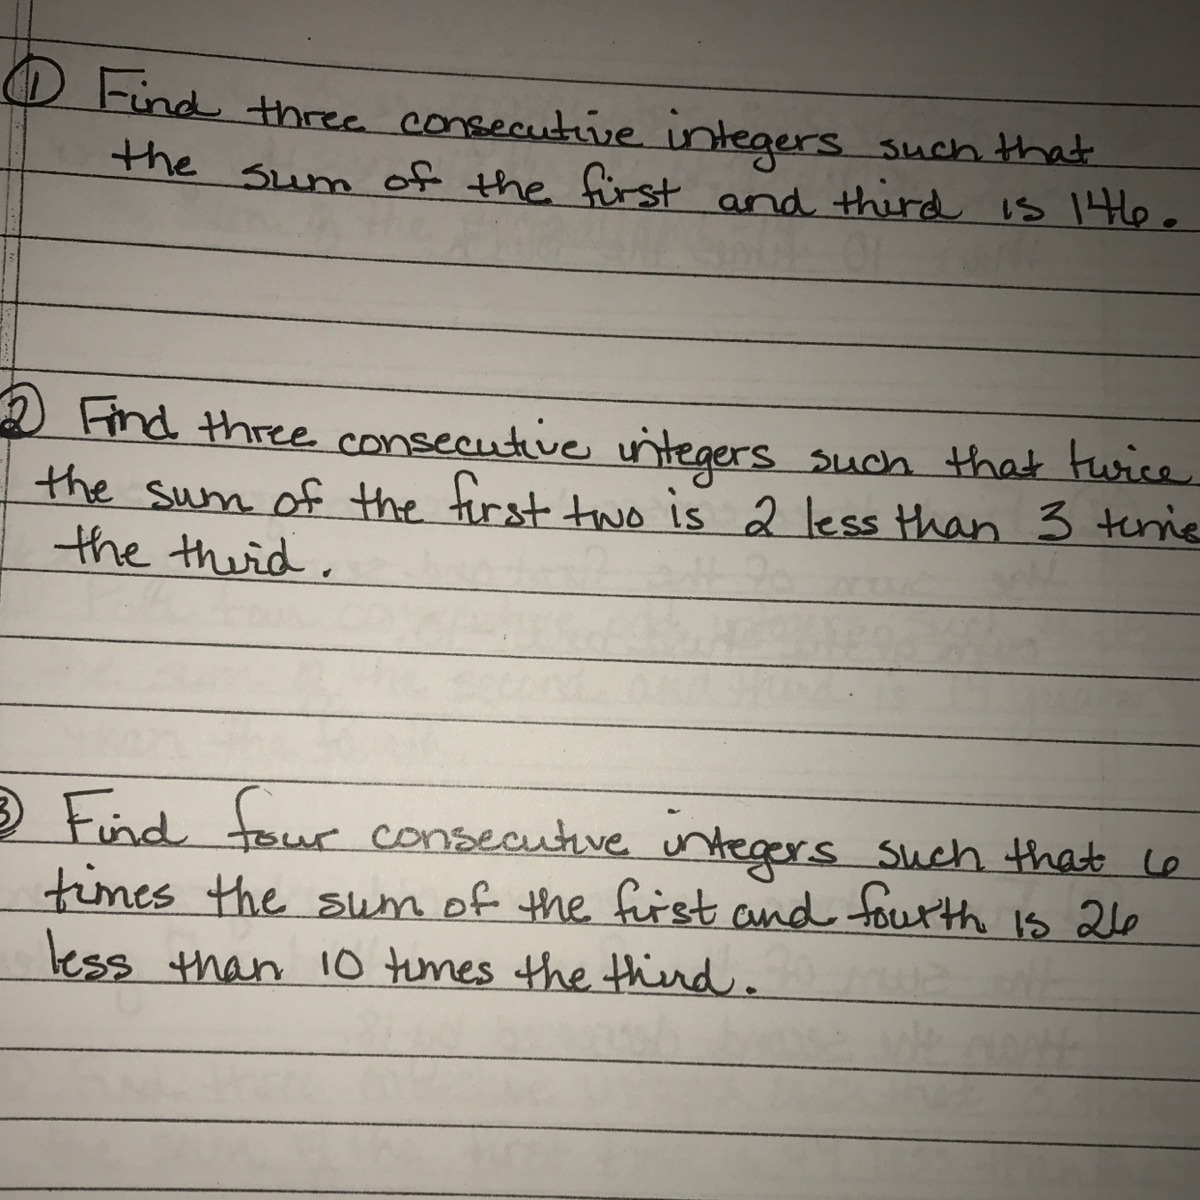 ① Find three consecutive integers such that
the sum of the first and third is 146.
② Find three consecutive integers such that twice
the sum of the first two is 2 less than 3 time
the third.
③ Find four consecutive integers such that 6
times the sum of the first and fourth is 26
less than 10 times the third.